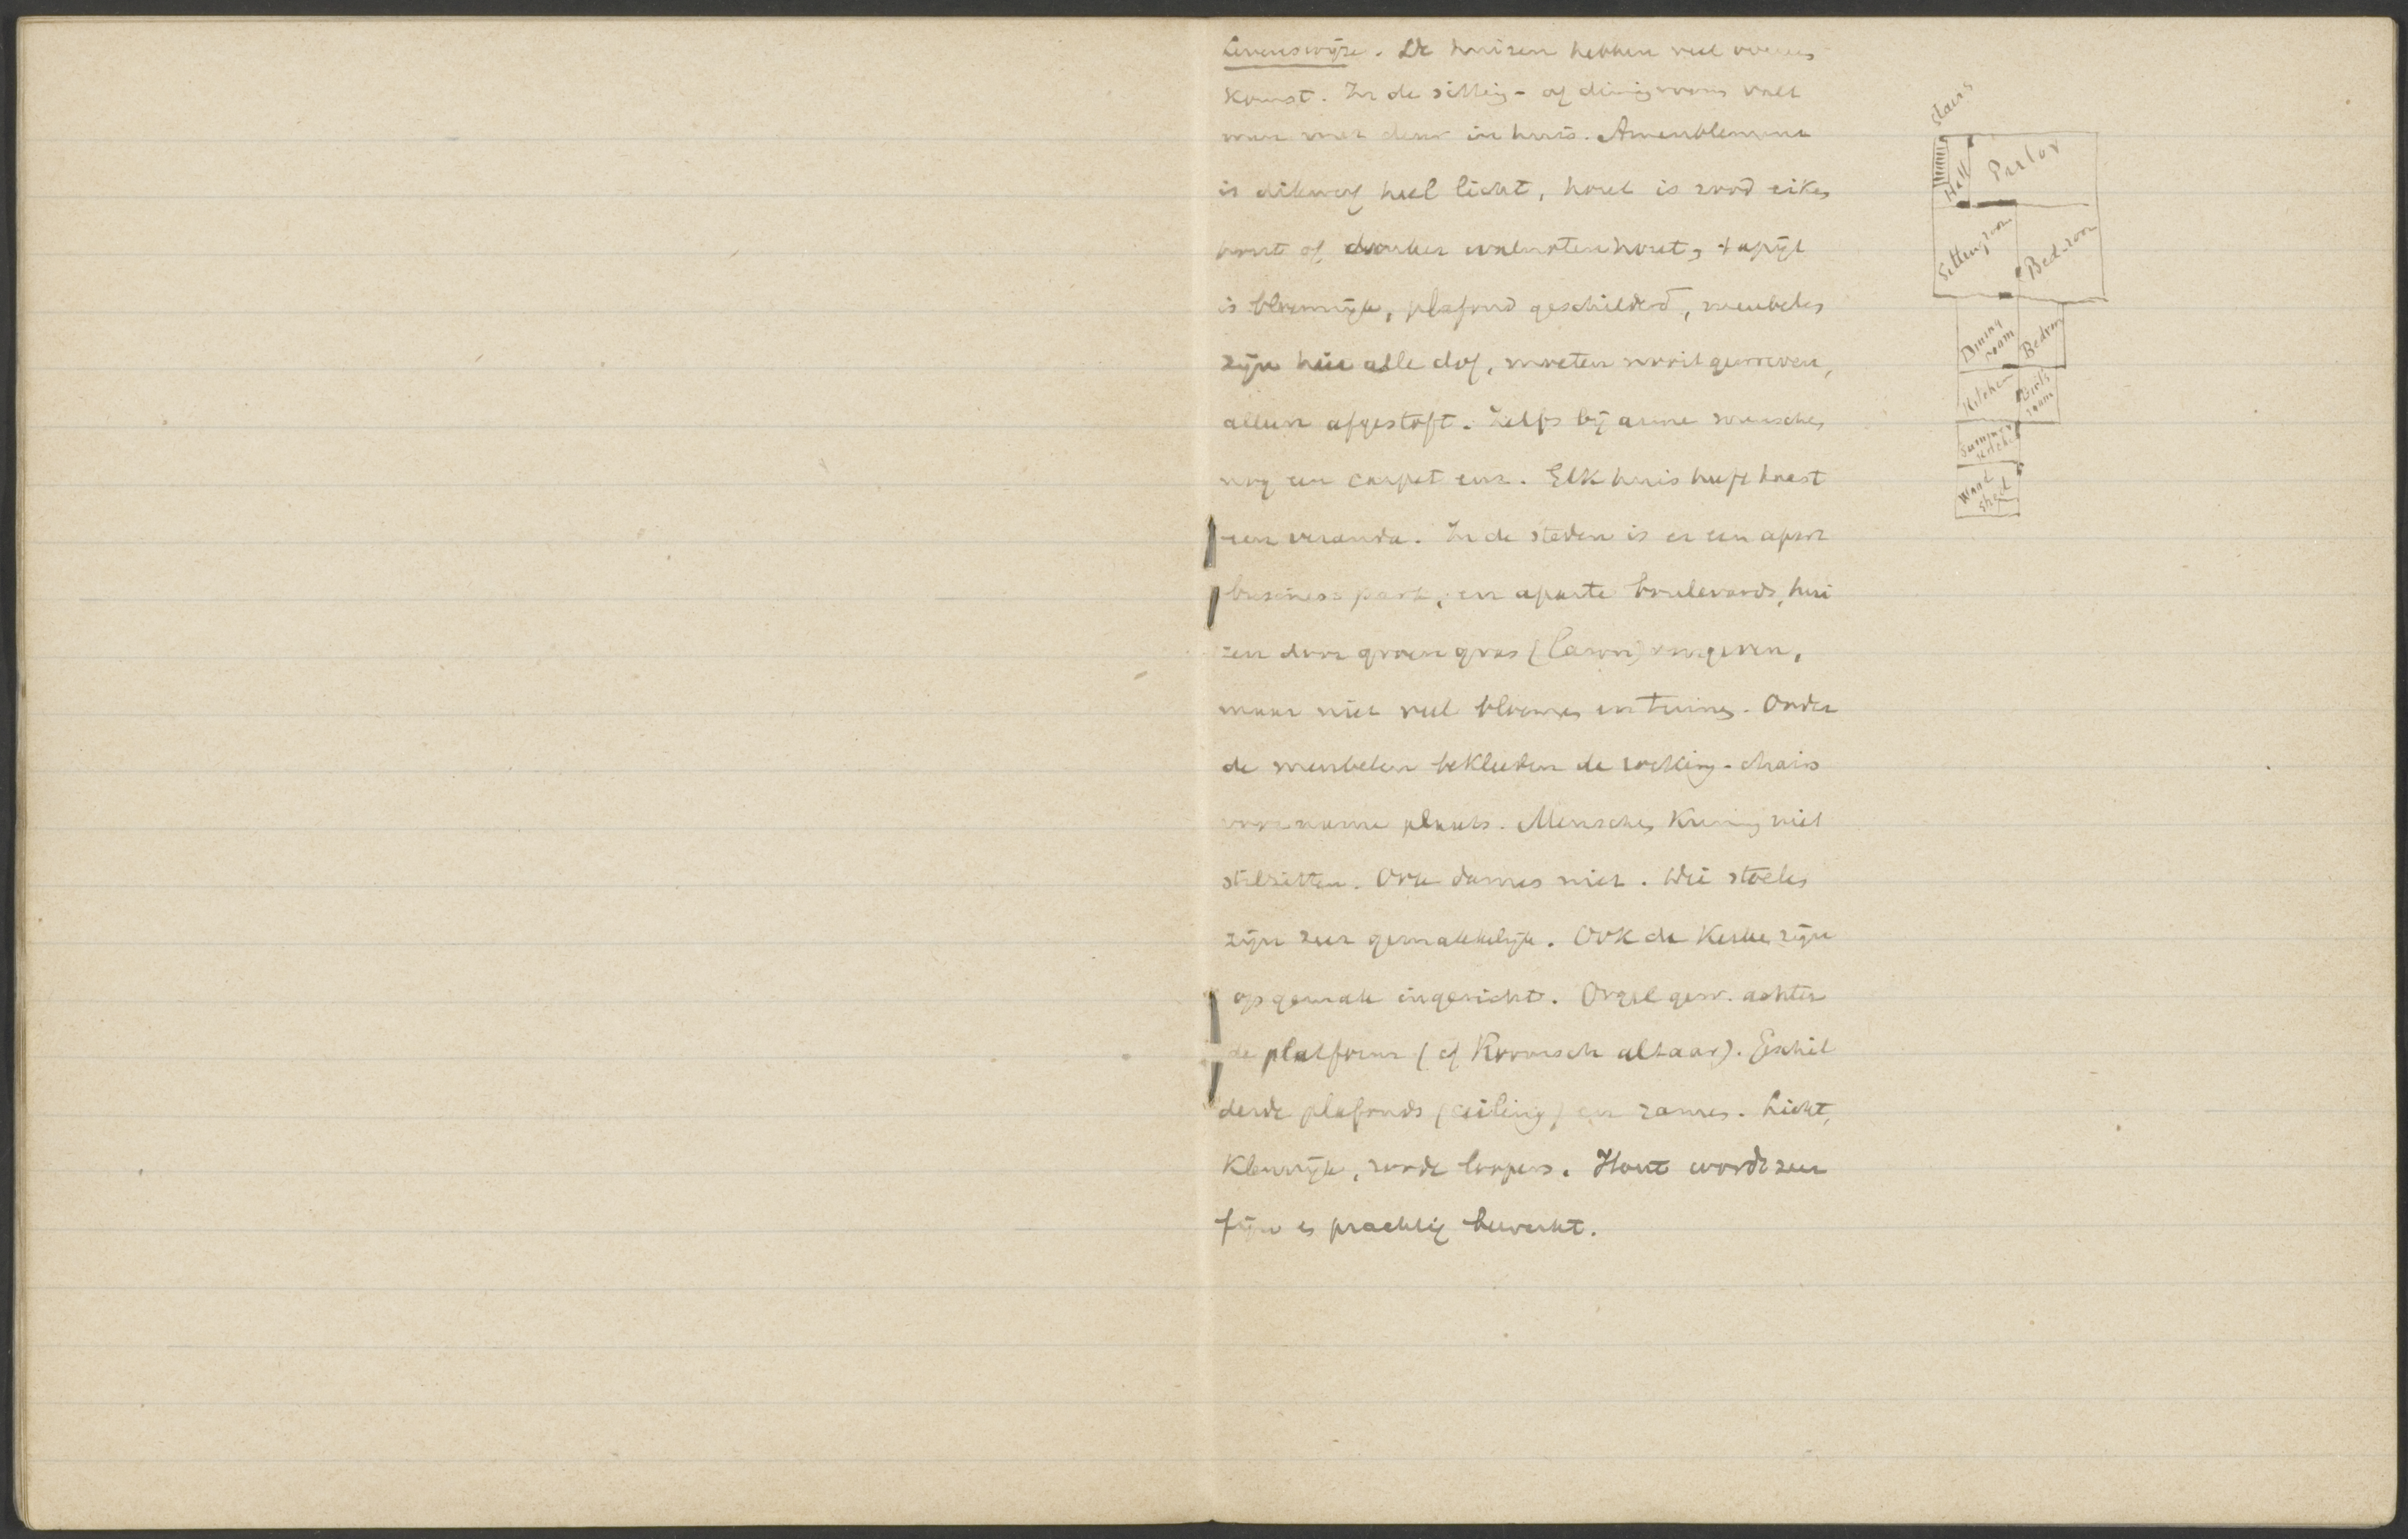 Levenswijze. De huizen hebben veel overeen
komst. In de sitting- of diningroom valt
men met deur in huis. Ameublement
is dikwerf heel licht, hout is rood eiken
hout of donker walnotenhout, tapijt
is bloemrijk, plafond geschilderd, meubelen
zijn hier alle dof, moeten nooit gewreven,
alleen afgestoft. Zelfs bij arme menschen
nog een carpet enz. Elk huis heeft haast
een veranda. In de steden is er een apart
business park, en aparte boulevards, hui
zen door groen gras (lawn) omgeven,
maar niet veel bloemen en tuinen. Onder
de meubelen bekleeden de rocking-chairs
voorname plaats. Menschen kunnen niet
stilzitten. Ook dames niet. Die stoelen
zijn zeer gemakkelijk. Ook de kerken zijn
op gemak ingericht. Orgel gew. achter
de platform (of Roomsch altaar). Geschil
derde plafonds (ceiling) en ramen. Licht,
kleurrijk, roode loopers. Hout wordt zeer
fijn en prachtig bewerkt.
Stairs
Hall Parlor
Sittingroom Bedroom
Dining room Bedroom
Kitchen Girl's room
Summer kitchen
Wood shed